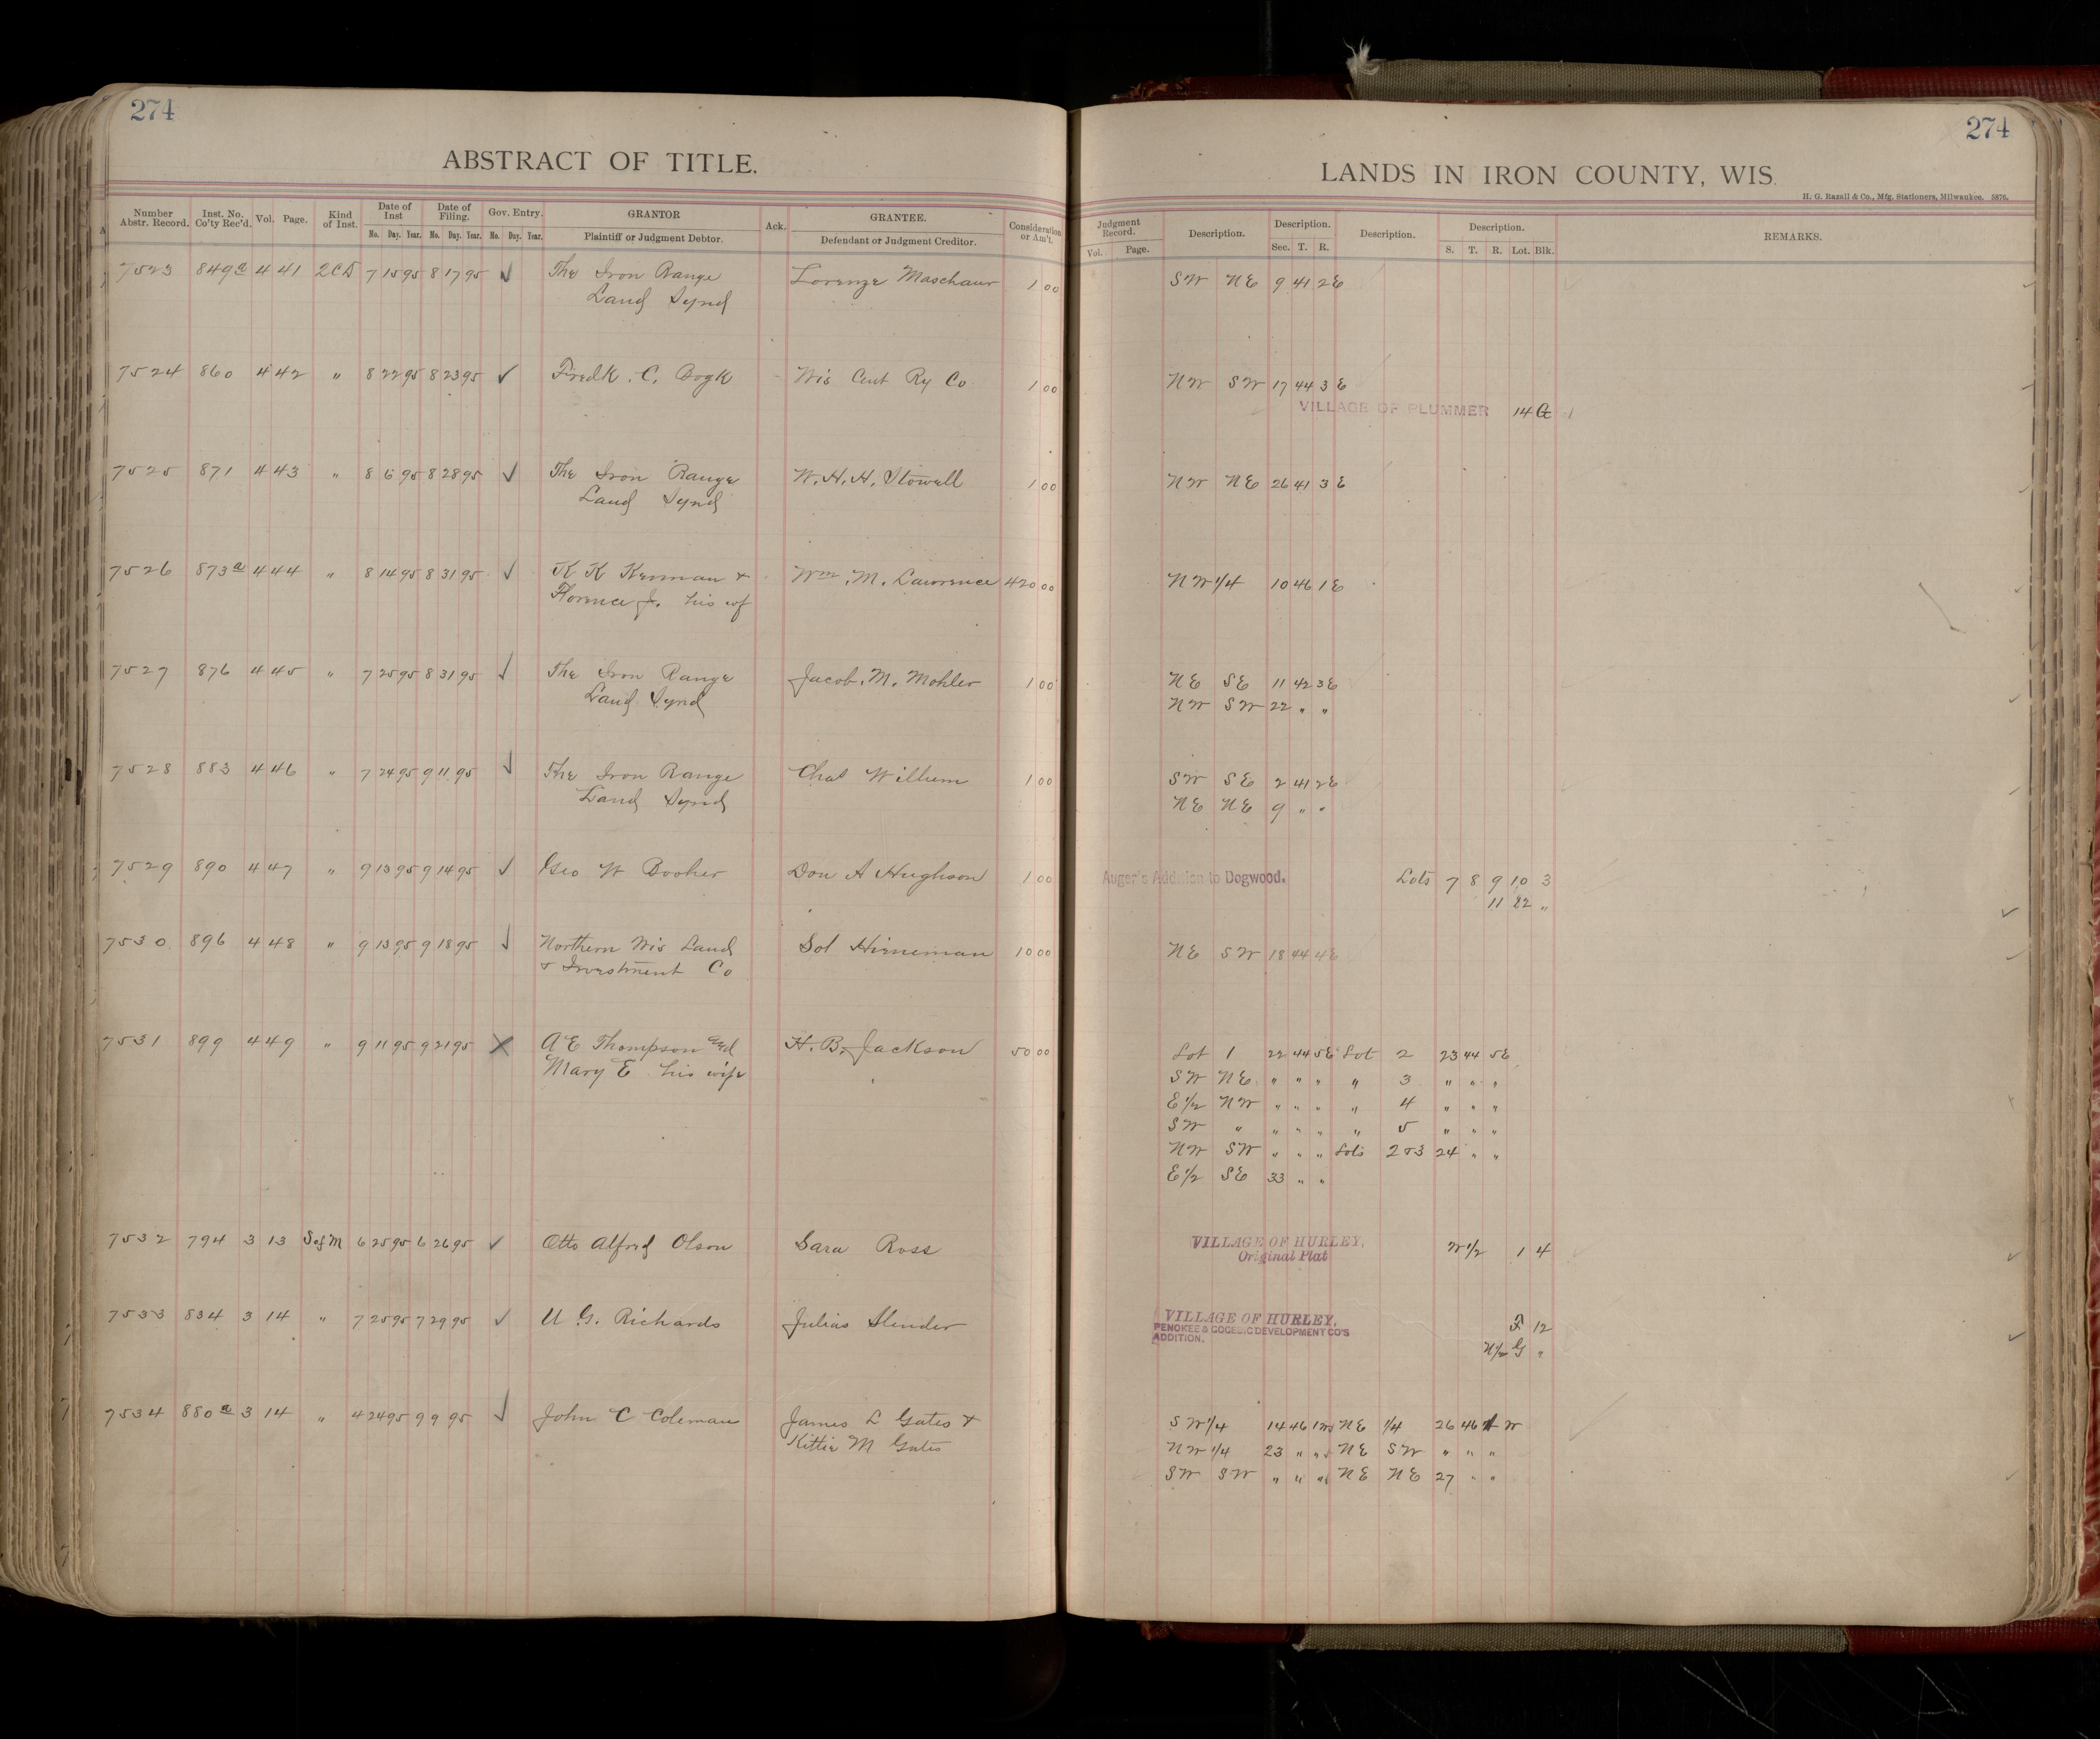 274
ABSTRACT OF TITLE.
Number Abstr. Record. Inst. No. Co'ty Rec'd. Vol. Page. Kind of Inst. Date of Inst Mo. Day. Year. Date of Filing. Mo. Day. Year. Gov. Entry. Mo. Day. Year. GRANTOR Plaintiff or Judgment Debtor. Ack. GRANTEE. Defendant or Judgment Creditor. Consideration or Am't.
7523 849a 4 41 2CD 7 15 95 8 17 95 ✓ The Iron Range Lorenze Maschaur 1 00
Land Synd
7524 860 4 42 " 8 22 95 8 23 95 ✓ Fredk. C. Bogk Wis Cent Ry Co 1 00
7525 871 4 43 " 8 6 95 8 28 95 ✓ The Iron Range W. H. H. Stowell 1 00
Land Synd
7526 873a 4 44 " 8 14 95 8 31 95 ✓ K K Kennan & Wm. M. Lawrence 420 00
Florence J. his wf
7527 876 4 45 " 7 25 95 8 31 95 ✓ The Iron Range Jacob. M. Mohler 1 00
Land Synd
7528 883 4 46 " 7 24 95 9 11 95 ✓ The Iron Range Chas Willum 1 00
Land Synd
7529 890 4 47 " 9 13 95 9 14 95 ✓ Geo W Booher Don A Hughson 1 00
7530 896 4 48 " 9 13 95 9 18 95 ✓ Northern Wis Land Sol Hirneman 10 00
& Investment Co
7531 899 4 49 " 9 11 95 9 21 95 X A E Thompson and H. B. Jackson 50 00
Mary E his wife
7532 794 3 13 S of M 6 25 95 6 26 95 ✓ Otto Alfred Olson Sara Ross
7533 834 3 14 " 7 25 95 7 29 95 ✓ U. G. Richards Julius Slender
7534 880a 3 14 " 4 24 95 9 9 95 ✓ John C Coleman James L Gates &
Kittie M Gates
274
LANDS IN IRON COUNTY, WIS.
H. G. Razall & Co., Mfg. Stationers, Milwaukee. 5876.
Judgment Record. Vol. Page. Description. Description. Sec. T. R. Description. Description. S. T. R. Lot. Blk. REMARKS.
SW NE 9 41 2E
NW SW 17 44 3 E
VILLAGE OF PLUMMER 14 G
NW NE 26 41 3 E
NW 1/4 10 46 1 E
NE SE 11 42 3E
NW SW 22 " "
SW SE 2 41 2E
NE NE 9 " "
Auger's Addition to Dogwood. Lots 7 8 9 10 3
11 12 "
NE SW 18 44 4E
Lot 1 22 44 5E Lot 2 23 44 5E
SW NE " " " " 3 " " "
E 1/2 NW " " " " 4 " " "
SW " " " " " 5 " " "
NW SW " " " Lots 2 & 3 24 " "
E 1/2 SE 33 " "
VILLAGE OF HURLEY, W 1/2 1 4
Original Plat
VILLAGE OF HURLEY, F 12
PENOKEE & GOGEBIC DEVELOPMENT CO'S
ADDITION. N 1/2 G "
SW 1/4 14 46 1W NE 1/4 26 46 1 W
NW 1/4 23 " " NE SW " " "
SW SW " " " NE NE 27 " "